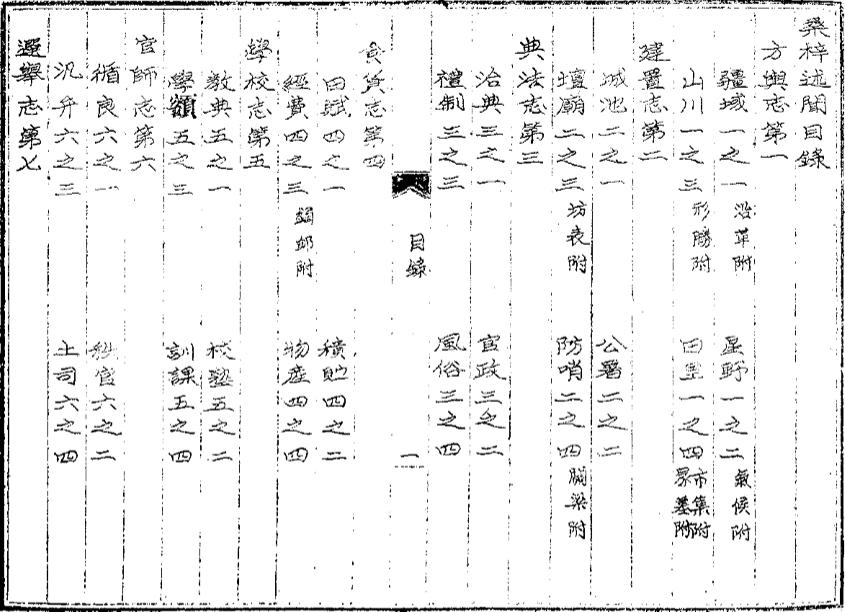 桑梓述聞目錄
方輿志第一
疆域一之一 沿革附 星野一之二 氣候附
山川一之三 形勝附 田里一之四 市集附 冢墓附
建置志第二
城池二之一 公署二之二
壇廟二之三 坊表附 防哨二之四 關梁附
典法志第三
治典三之一 官政三之二
禮制三之三 風俗三之四
目錄 一
食貨志第四
田賦四之一 積貯四之二
經費四之三 蠲卹附 物產四之四
學校志第五
教典五之一 校塾五之二
學額五之三 訓課五之四
官師志第六
循良六之一 秩官六之二
汛弁六之三 土司六之四
選舉志第七